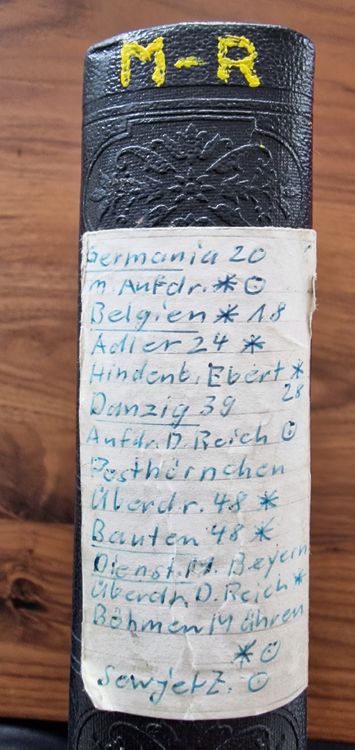 M-R
Germania 20
m. Aufdr. * ʘ
Belgien * 18
Adler 24 *
Hindenb. Ebert *
28
Danzig 39
Aufdr. D. Reich ʘ
Posthörnchen
Überdr. 48 *
Bauten 48 *
Dienst. M. Beyern
Überdr. D. Reich *
Böhmen Mähren
* ʘ
Sowjet Z. ʘ